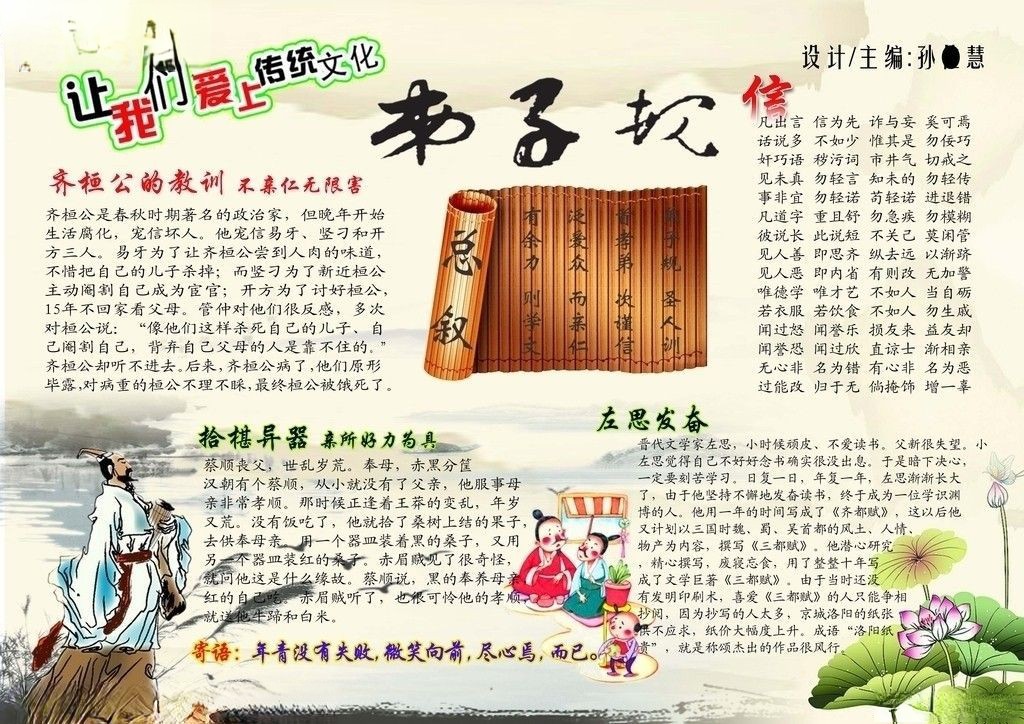 让我们爱上传统文化
设计/主编:孙 慧
弟子规
信
凡出言 信为先 诈与妄 奚可焉
话说多 不如少 惟其是 勿佞巧
奸巧语 秽污词 市井气 切戒之
见未真 勿轻言 知未的 勿轻传
事非宜 勿轻诺 苟轻诺 进退错
凡道字 重且舒 勿急疾 勿模糊
彼说长 此说短 不关己 莫闲管
见人善 即思齐 纵去远 以渐跻
见人恶 即内省 有则改 无加警
唯德学 唯才艺 不如人 当自砺
若衣服 若饮食 不如人 勿生戚
闻过怒 闻誉乐 损友来 益友却
闻誉恐 闻过欣 直谅士 渐相亲
无心非 名为错 有心非 名为恶
过能改 归于无 倘掩饰 增一辜
齐桓公的教训 不亲仁无限害
齐桓公是春秋时期著名的政治家，但晚年开始
生活腐化，宠信坏人。他宠信易牙、竖刁和开
方三人。易牙为了让齐桓公尝到人肉的味道，
不惜把自己的儿子杀掉；而竖刁为了新近桓公
主动阉割自己成为宦官；开方为了讨好桓公，
15年不回家看父母。管仲对他们很反感，多次
对桓公说：“像他们这样杀死自己的儿子、自
己阉割自己，背弃自己父母的人是靠不住的。”
齐桓公却听不进去。后来，齐桓公病了，他们原形
毕露，对病重的桓公不理不睬，最终桓公被饿死了。
总叙
弟子规 圣人训
首孝弟 次谨信
泛爱众 而亲仁
有余力 则学文
拾椹异器 亲所好力为具
蔡顺丧父，世乱岁荒。奉母，赤黑分筐
汉朝有个蔡顺，从小就没有了父亲，他服事母
亲非常孝顺。那时候正逢着王莽的变乱，年岁
又荒。没有饭吃了，他就拾了桑树上结的果子，
去供奉母亲。用一个器皿装着黑的桑子，又用
另一个器皿装红的桑子。赤眉贼见了很奇怪，
就问他这是什么缘故。蔡顺说，黑的奉养母亲
红的自己吃。赤眉贼听了，也很可怜他的孝顺，
就送他牛蹄和白米。
左思发奋
晋代文学家左思，小时候顽皮、不爱读书。父新很失望。小
左思觉得自己不好好念书确实很没出息。于是暗下决心，
一定要刻苦学习。日复一日，年复一年，左思渐渐长大
了，由于他坚持不懈地发奋读书，终于成为一位学识渊
博的人。他用一年的时间写成了《齐都赋》，这以后他
又计划以三国时魏、蜀、吴首都的风土、人情、
物产为内容，撰写《三都赋》。他潜心研究
，精心撰写，废寝忘食，用了整整十年写
成了文学巨著《三都赋》。由于当时还没
有发明印刷术，喜爱《三都赋》的人只能争相
抄阅，因为抄写的人太多，京城洛阳的纸张
供不应求，纸价大幅度上升。成语“洛阳纸
贵”，就是称颂杰出的作品很风行。
寄语：年青没有失败，微笑向前，尽心焉，而已。